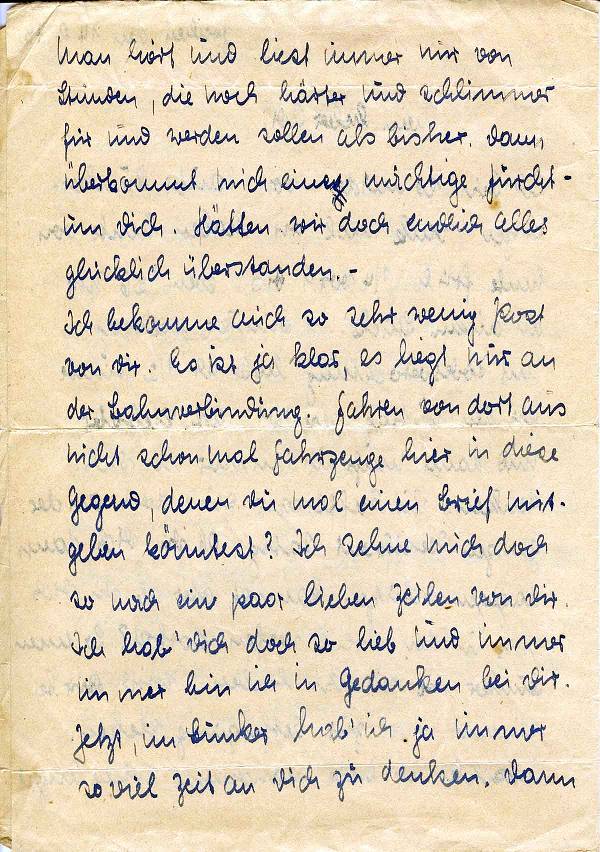 Man hört und liest immer nur von
Stunden, die noch härter und schlimmer
für uns werden sollen als bisher. Dann
überkommt mich eine mächtige Furcht
um Dich. Hätten wir doch endlich alles
glücklich überstanden.-
Ich bekomme auch so sehr wenig Post
von Dir. Es ist ja klar, es liegt nur an
der Bahnverbindung. Fahren von dort aus
nicht schon mal Fahrzeuge hier in diese
Gegend, denen Du mal einen Brief mit-
geben könntest? Ich sehne mich doch
so nach ein paar lieben Zeilen von Dir.
Ich hab' Dich doch so lieb und immer
immer bin ich in Gedanken bei Dir.
Jetzt, im Bunker hab' ich ja immer
so viel Zeit an Dich zu denken. Dann